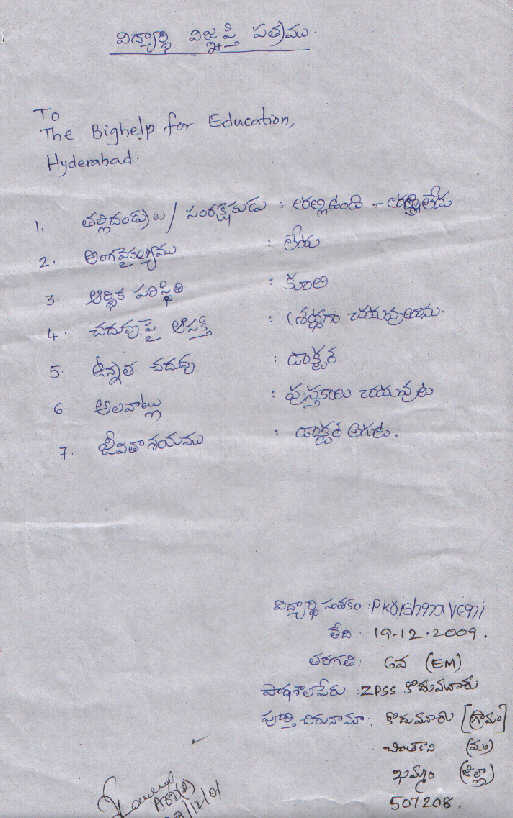 విద్యార్థి విజ్ఞప్తి పత్రము.
To
The Bighelp for Education,
Hyderabad.
1. తల్లిదండ్రులు / సంరక్షకుడు : తల్లిఉంది - తండ్రిలేడు
2. అంగవైకల్యము : లేదు
3 ఆర్థిక పరిస్థితి : కూలి
4. చదువుపై ఆసక్తి : శ్రద్ధగా చదువుతాను.
5. ఉన్నత చదువు : డాక్టర్
6 అలవాట్లు : పుస్తకాలు చదువుట
7. జీవితాశయము : డాక్టర్ అగుట.
విద్యార్థి సంతకం : P Krishnaveni
తేది : 19.12.2009.
తరగతి : 6వ (EM)
పాఠశాలపేరు : ZPSS కొదుమూరు
పూర్తి చిరునామా : కొదుమూరు [గ్రామం]
చింతకాని (మం)
ఖమ్మం (జిల్లా)
507208.